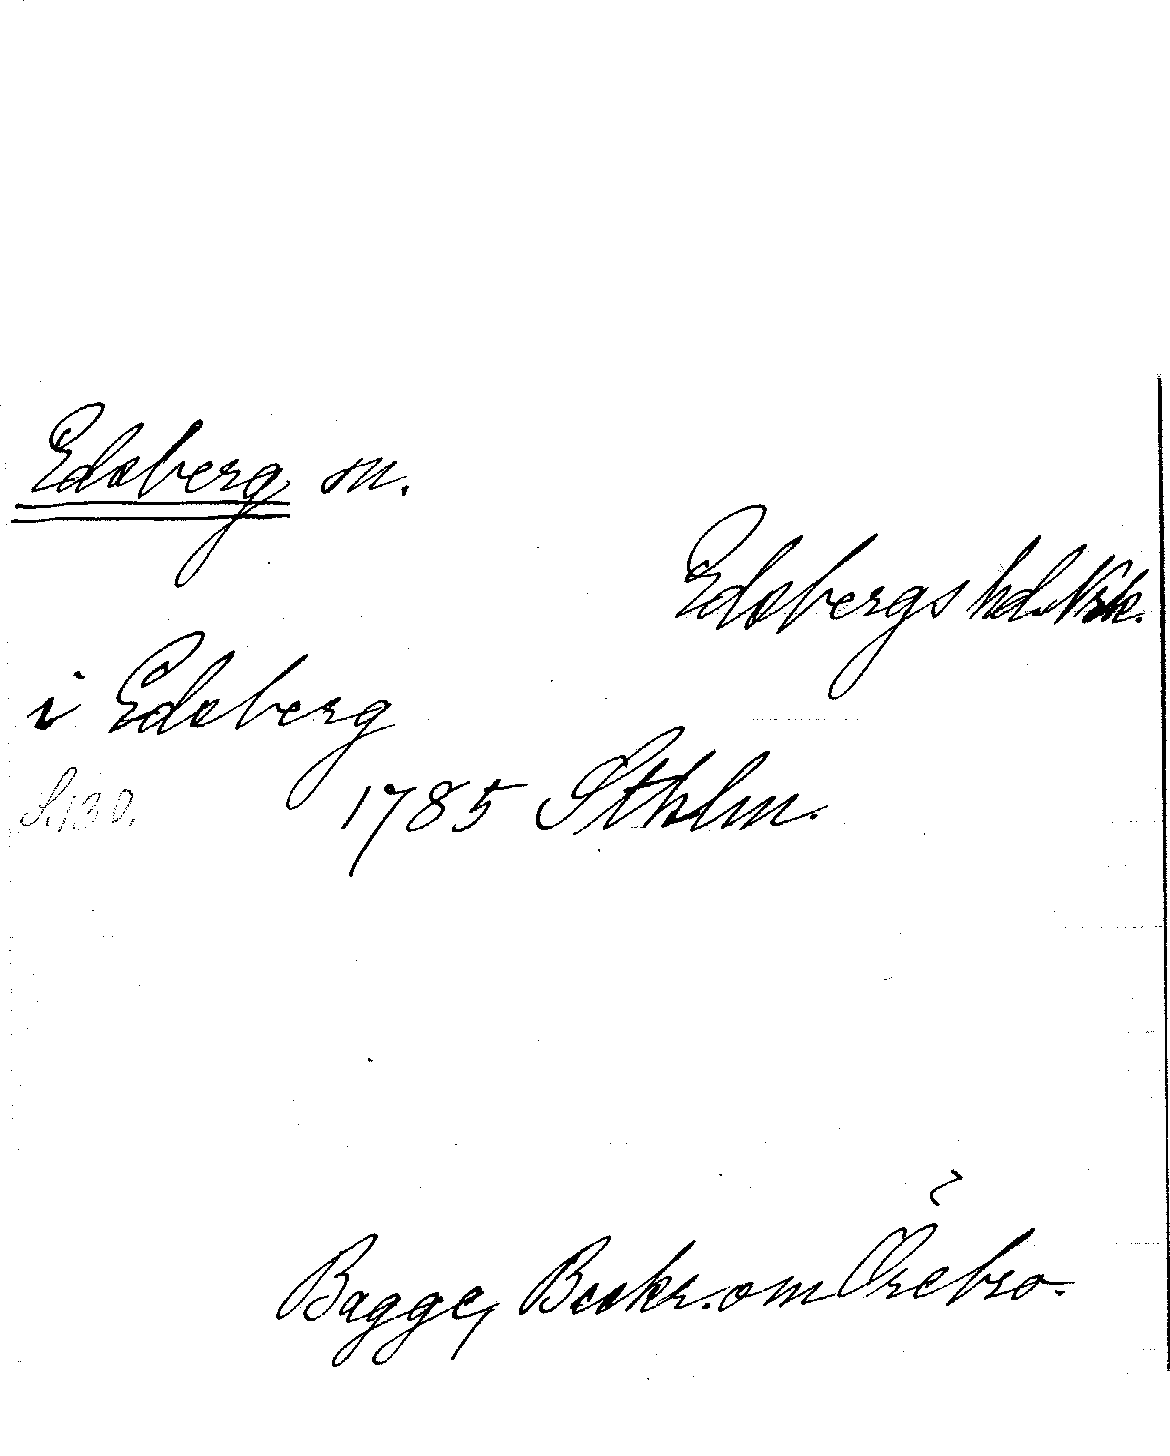 Edsberg sn.
Edsbergs hd. Nrk.
i Edsberg
S. 130. 1785 Sthlm.
Bagge, Beskr. om Örebro.